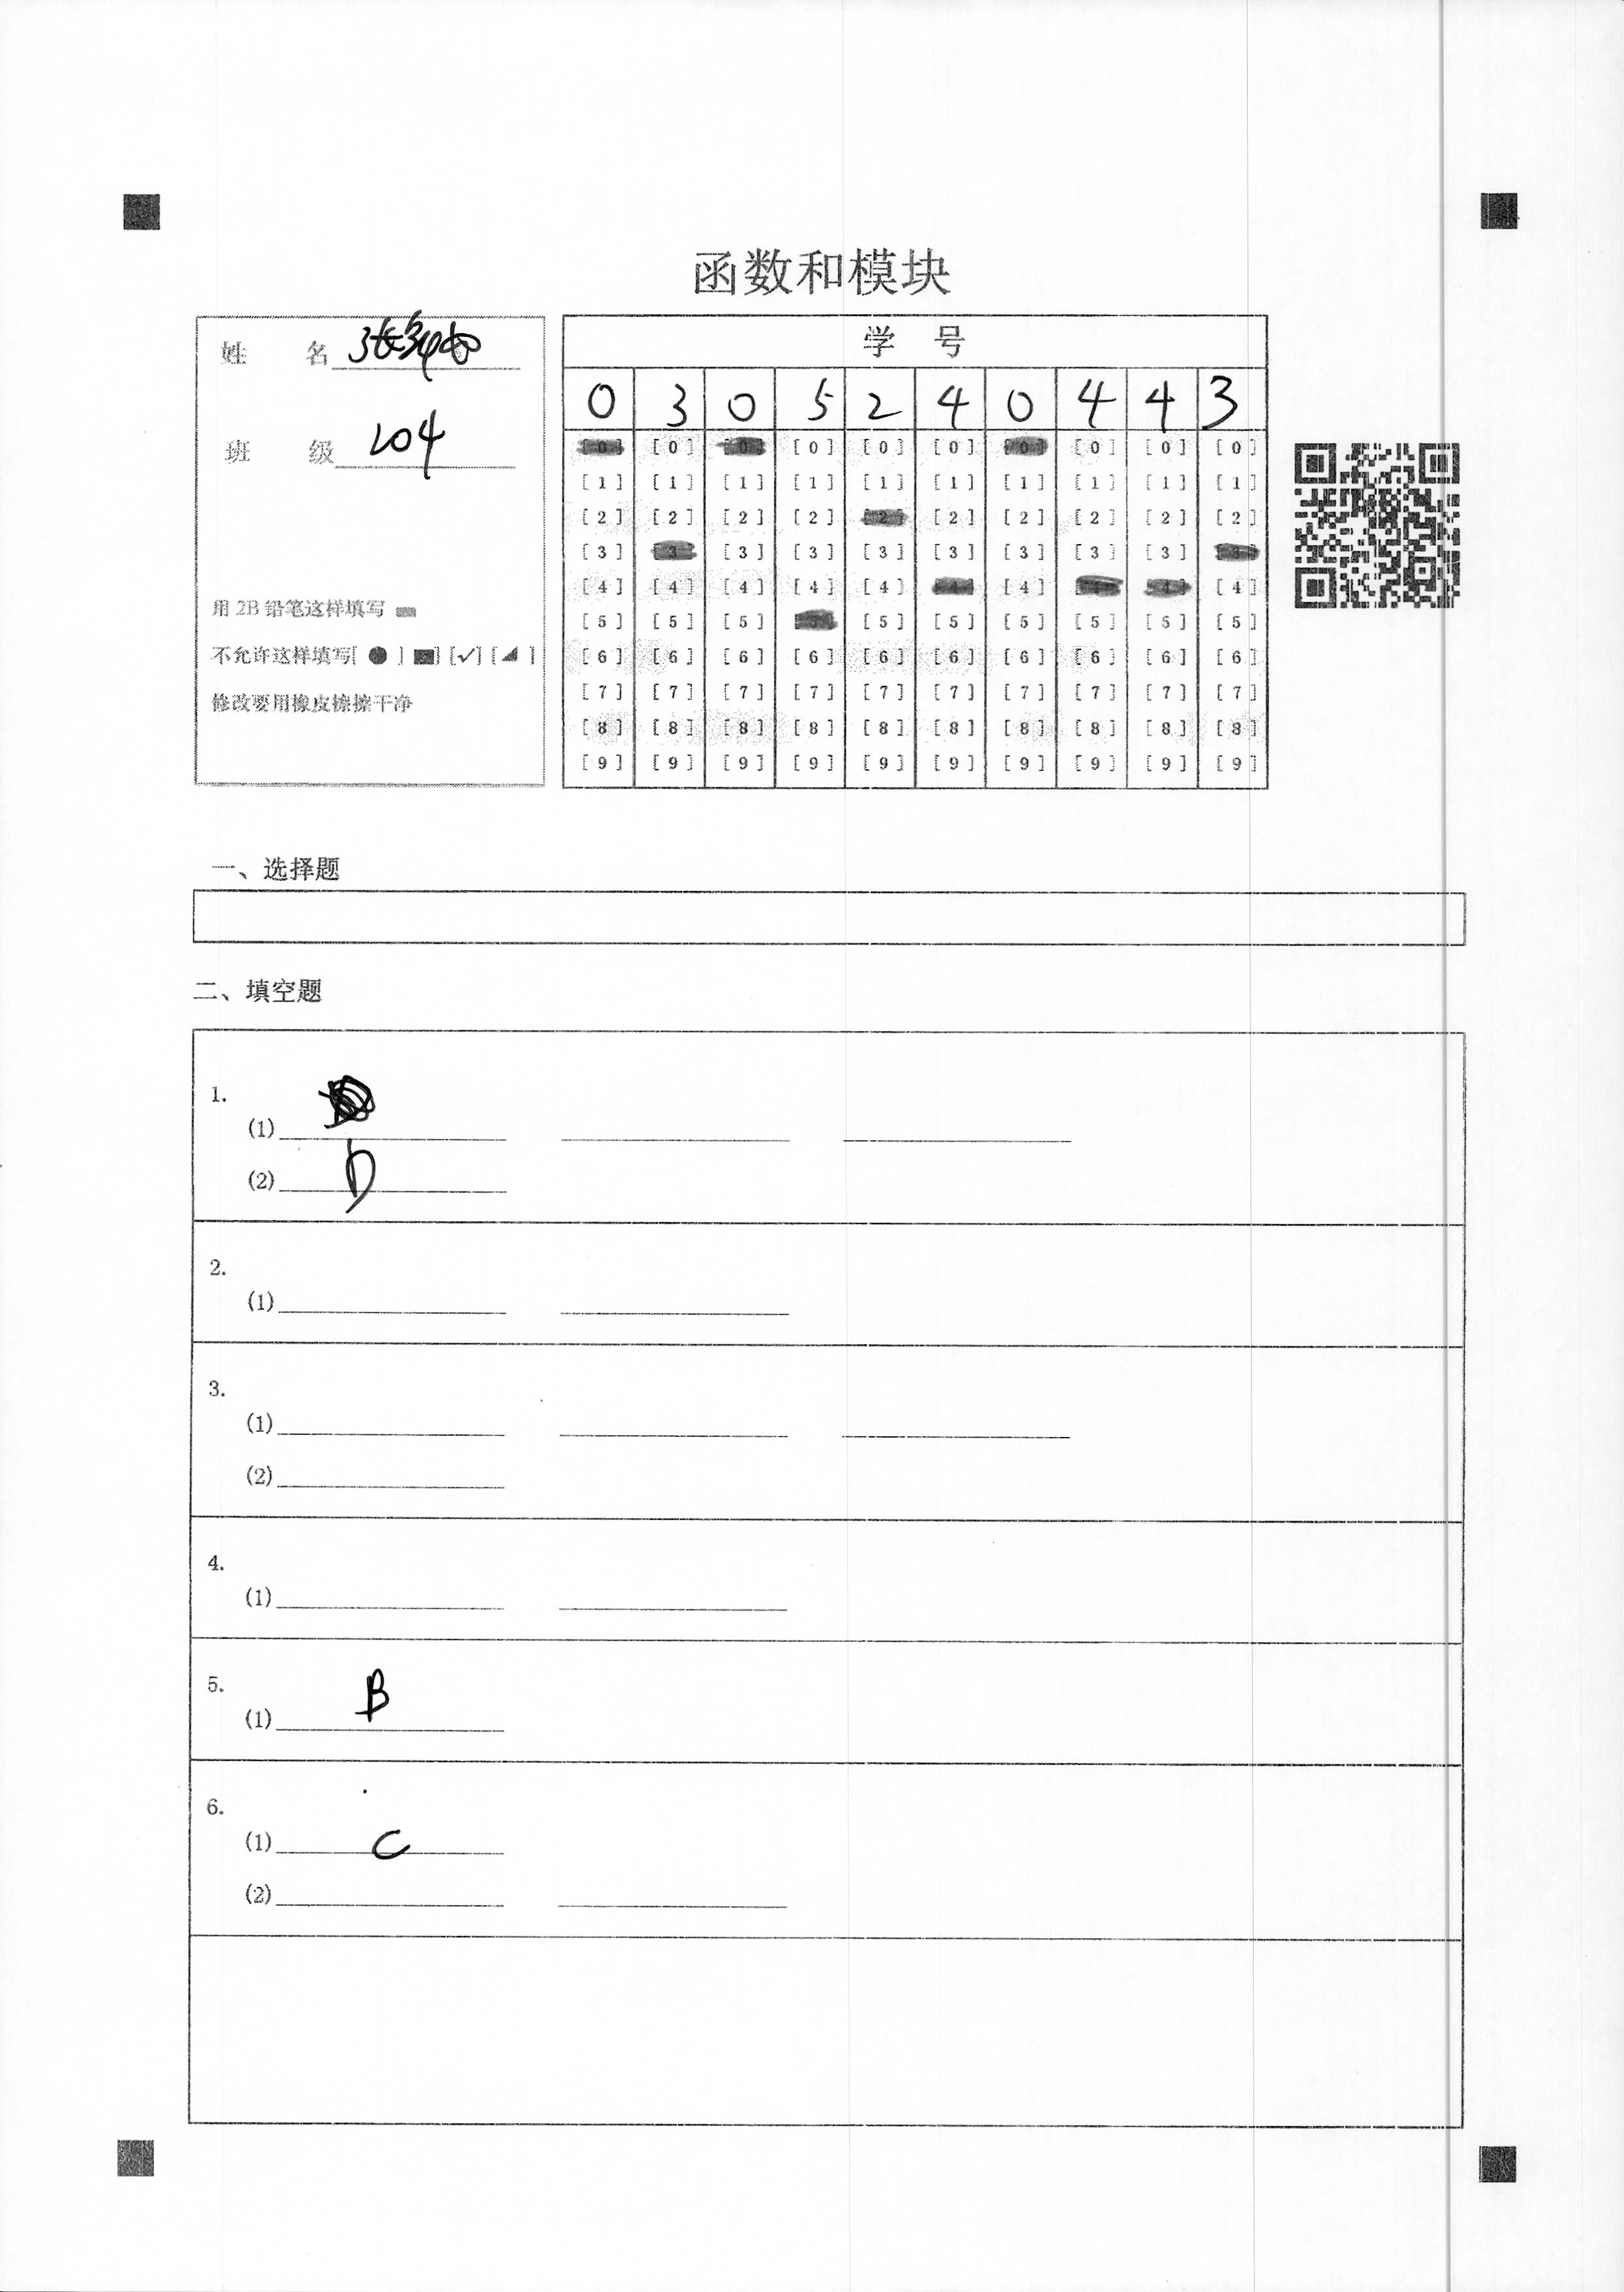 函数和模块
姓 名 张
班 级 204
用 2B 铅笔这样填写
不允许这样填写[ ● ] [■] [✓] [◢ ]
修改要用橡皮擦擦干净
学 号
0 3 0 5 2 4 0 4 4 3
[0] [0] [0] [0] [0] [0] [0] [0] [0] [0]
[1] [1] [1] [1] [1] [1] [1] [1] [1] [1]
[2] [2] [2] [2] [2] [2] [2] [2] [2] [2]
[3] [3] [3] [3] [3] [3] [3] [3] [3] [3]
[4] [4] [4] [4] [4] [4] [4] [4] [4] [4]
[5] [5] [5] [5] [5] [5] [5] [5] [5] [5]
[6] [6] [6] [6] [6] [6] [6] [6] [6] [6]
[7] [7] [7] [7] [7] [7] [7] [7] [7] [7]
[8] [8] [8] [8] [8] [8] [8] [8] [8] [8]
[9] [9] [9] [9] [9] [9] [9] [9] [9] [9]
一、选择题
二、填空题
1.
(1)
(2) D
2.
(1)
3.
(1)
(2)
4.
(1)
5.
(1) B
6.
(1) C
(2)